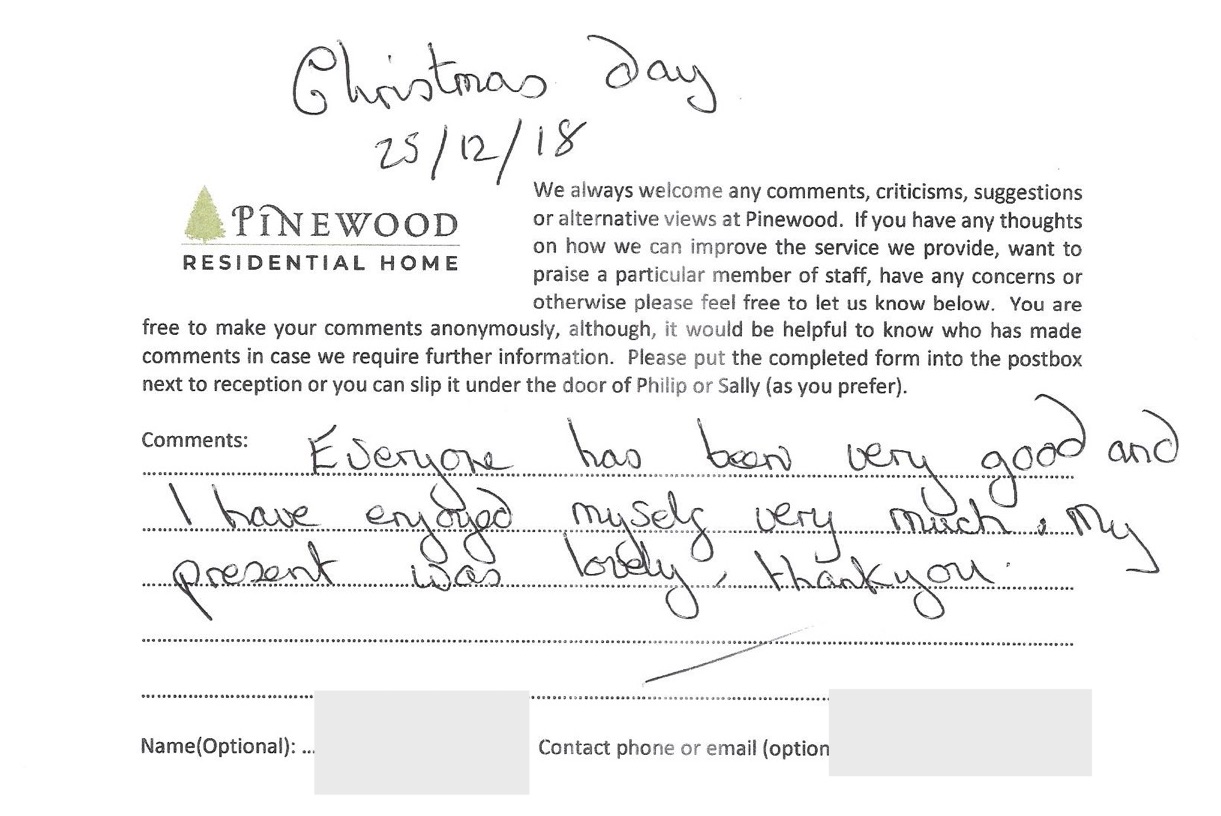 Christmas Day
25/12/18
PINEWOOD
RESIDENTIAL HOME
We always welcome any comments, criticisms, suggestions
or alternative views at Pinewood. If you have any thoughts
on how we can improve the service we provide, want to
praise a particular member of staff, have any concerns or
otherwise please feel free to let us know below. You are
free to make your comments anonymously, although, it would be helpful to know who has made
comments in case we require further information. Please put the completed form into the postbox
next to reception or you can slip it under the door of Philip or Sally (as you prefer).
Comments: Everyone has been very good and
I have enjoyed myself very much. My
present was lovely, thankyou.
Name(Optional): ... Contact phone or email (option